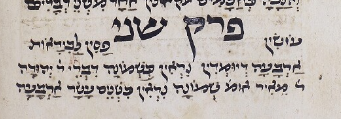 פרק שני
עושין פסין לביראות
ארבעה דיומדין נראין כשמונה דברי ר' יהודה
ר' מאיר אומ' שמונה נראין כשנים עשר ארבעה